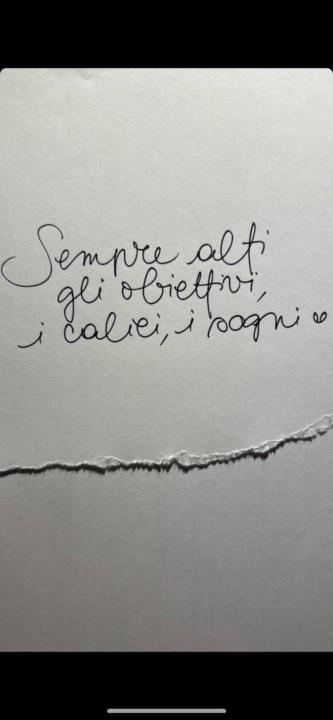 Sempre alti
gli obiettivi,
i calici, i sogni